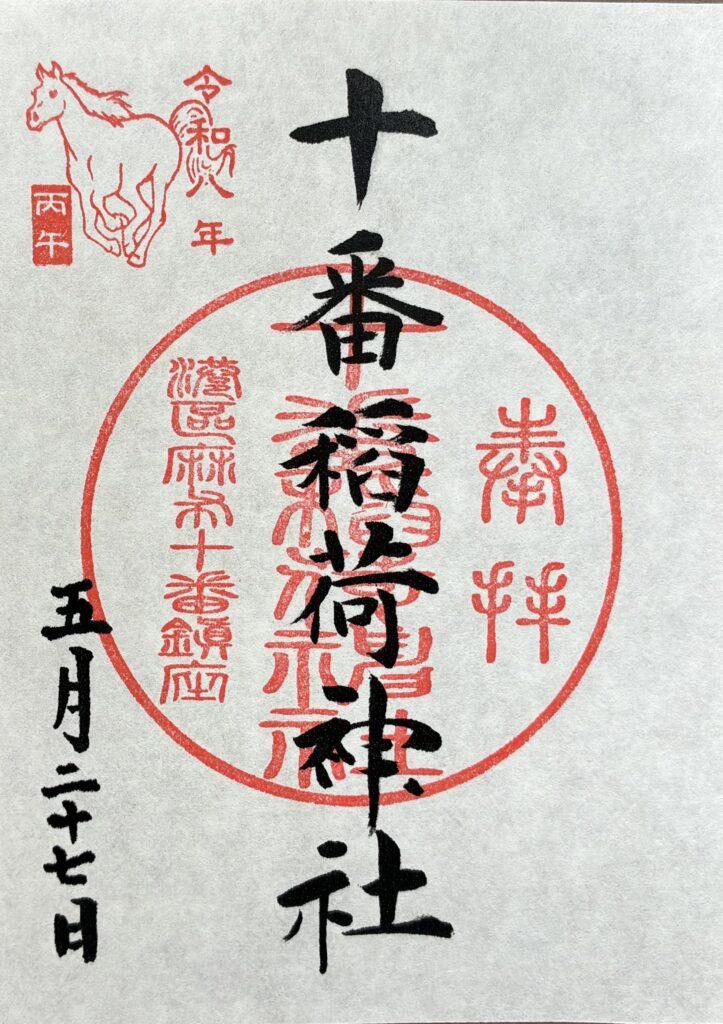 奉拝
十番稲荷神社
十番稲荷神社
港區麻布十番鎮座
令和八年
丙午
五月二十七日